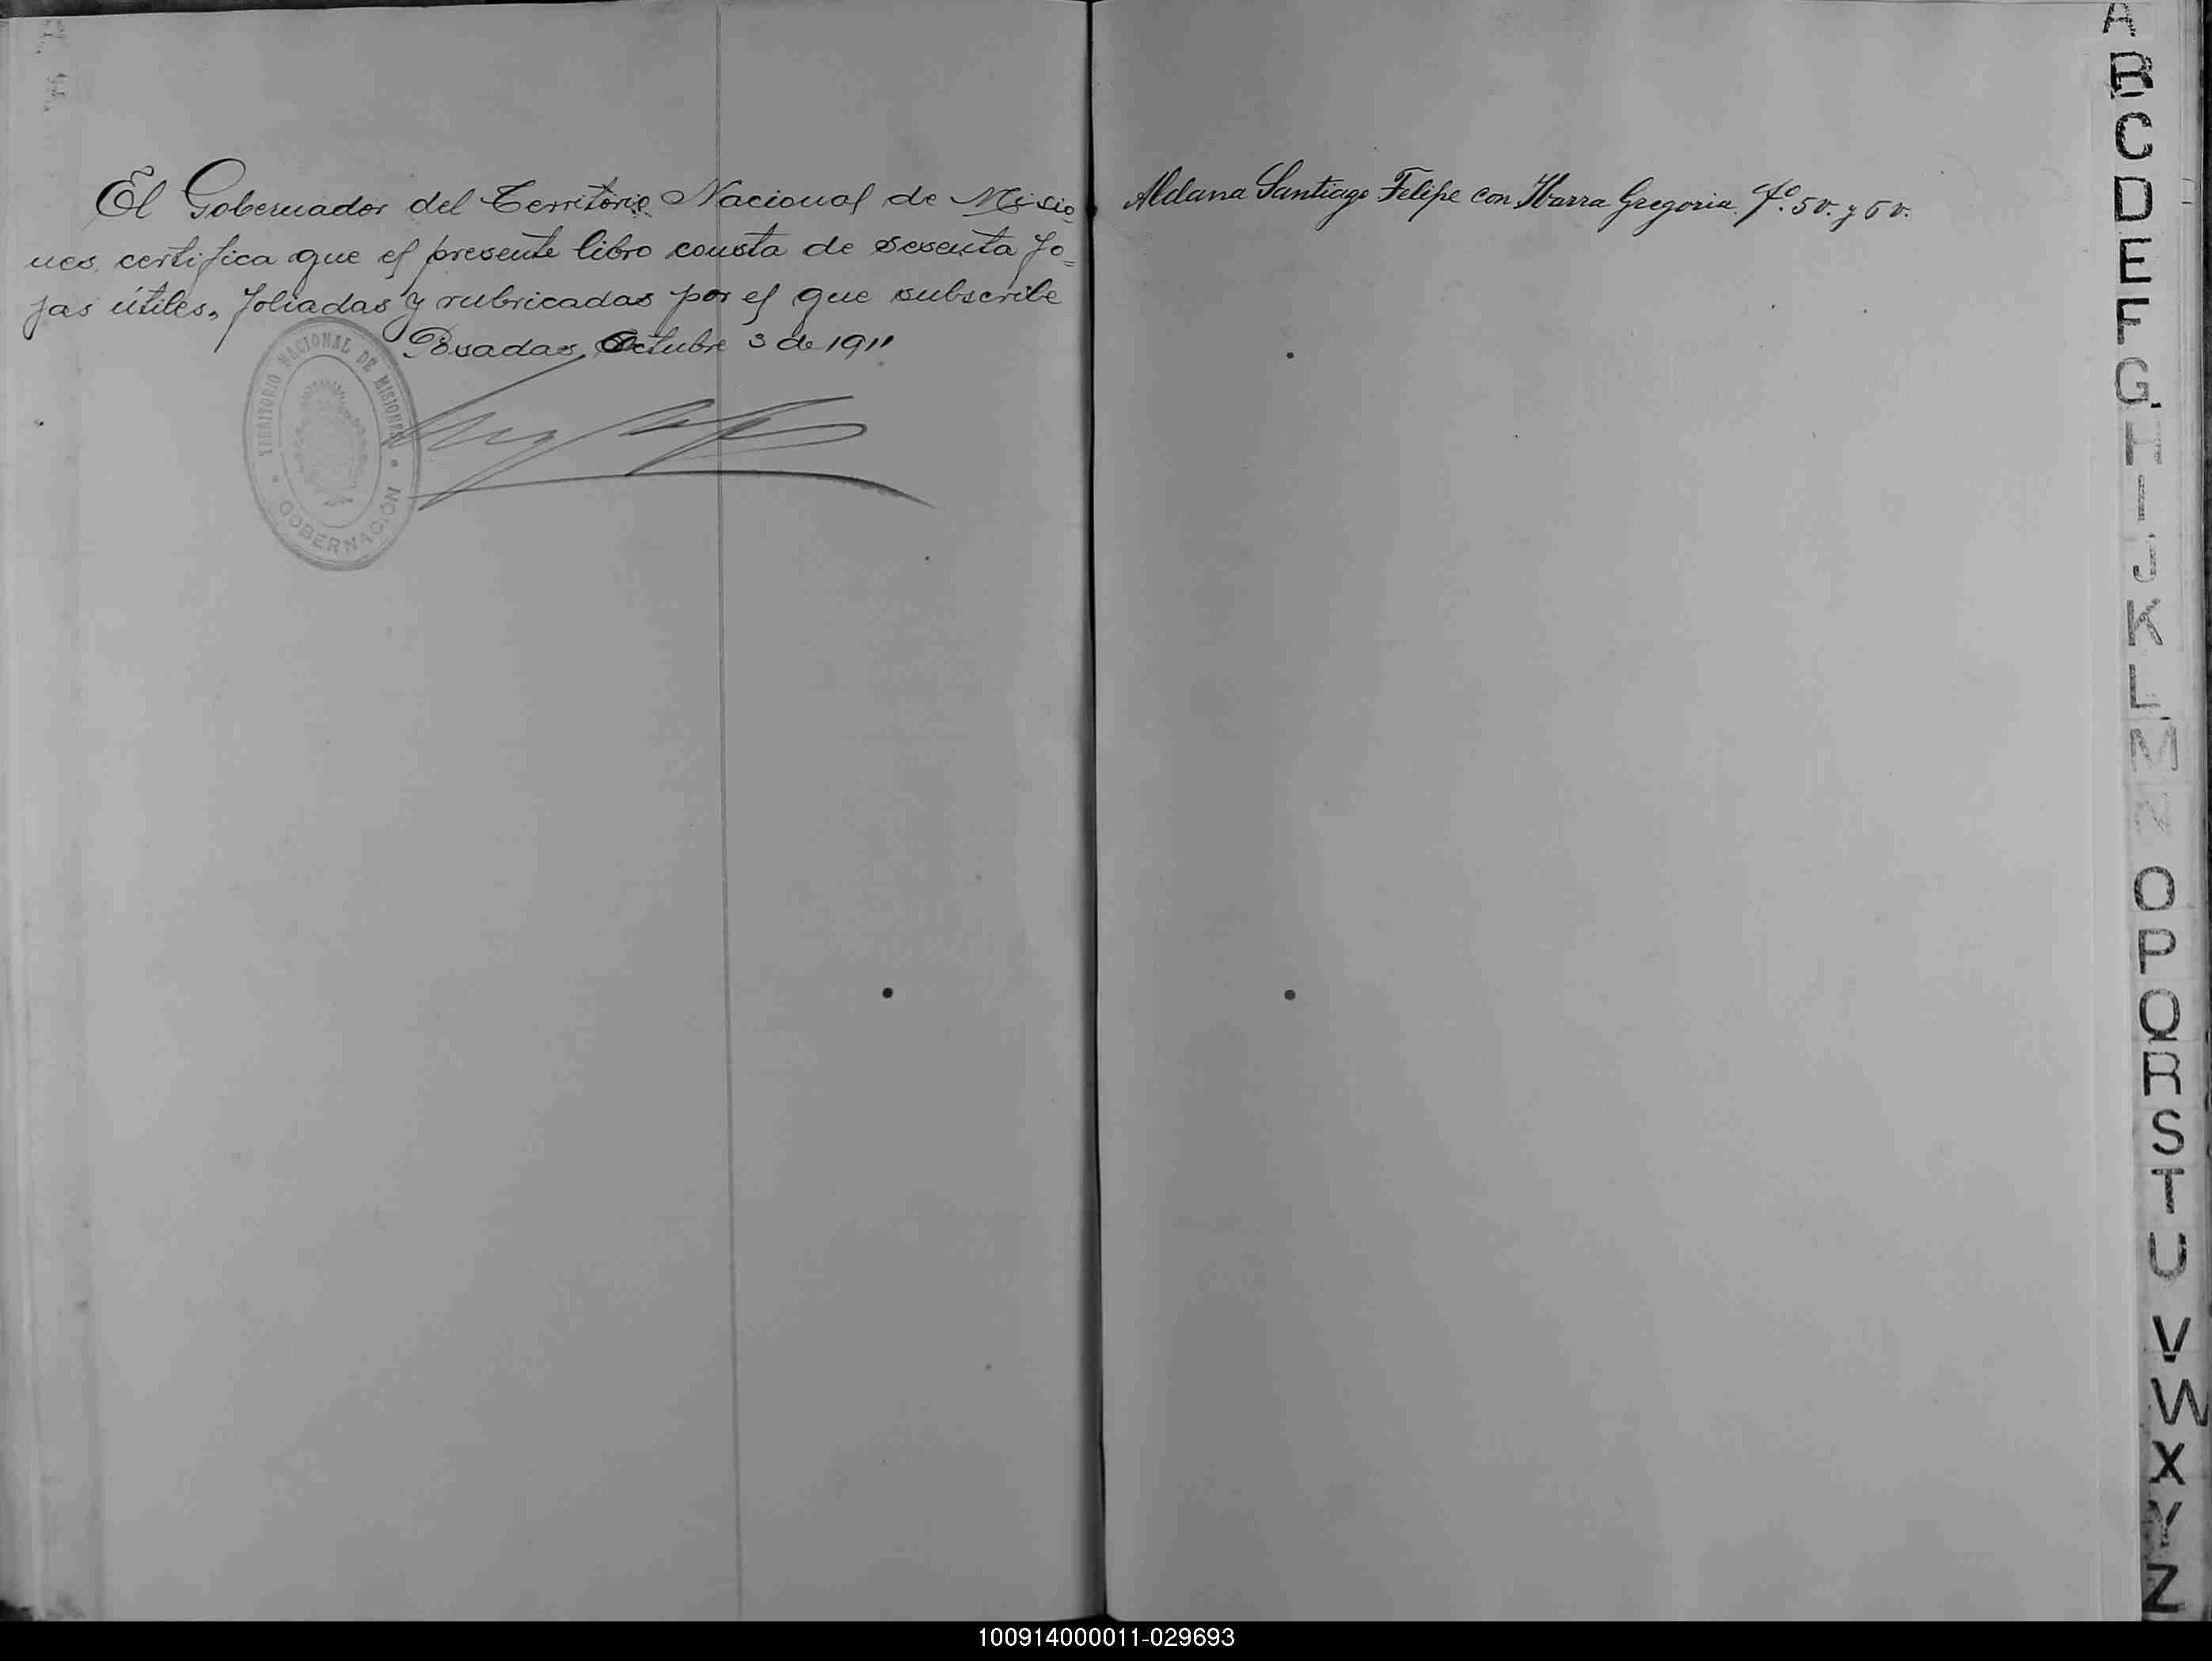 El Gobernador del Territorio Nacional de Misio
nes, certifica que el presente libro consta de sesenta fo=
jas útiles, foliadas y rubricadas por el que subscribe
Posadas, Octubre 3 de 1911
TERRITORIO NACIONAL DE MISIONES
GOBERNACIÓN
Aldana Santiago Felipe con Ibarra Gregoria. Fº. 5 v. y 6 v.
A
B
C
D
E
F
G
H
I
J
K
L
M
O
P
Q
R
S
T
U
V
W
X
Y
Z
100914000011-029693